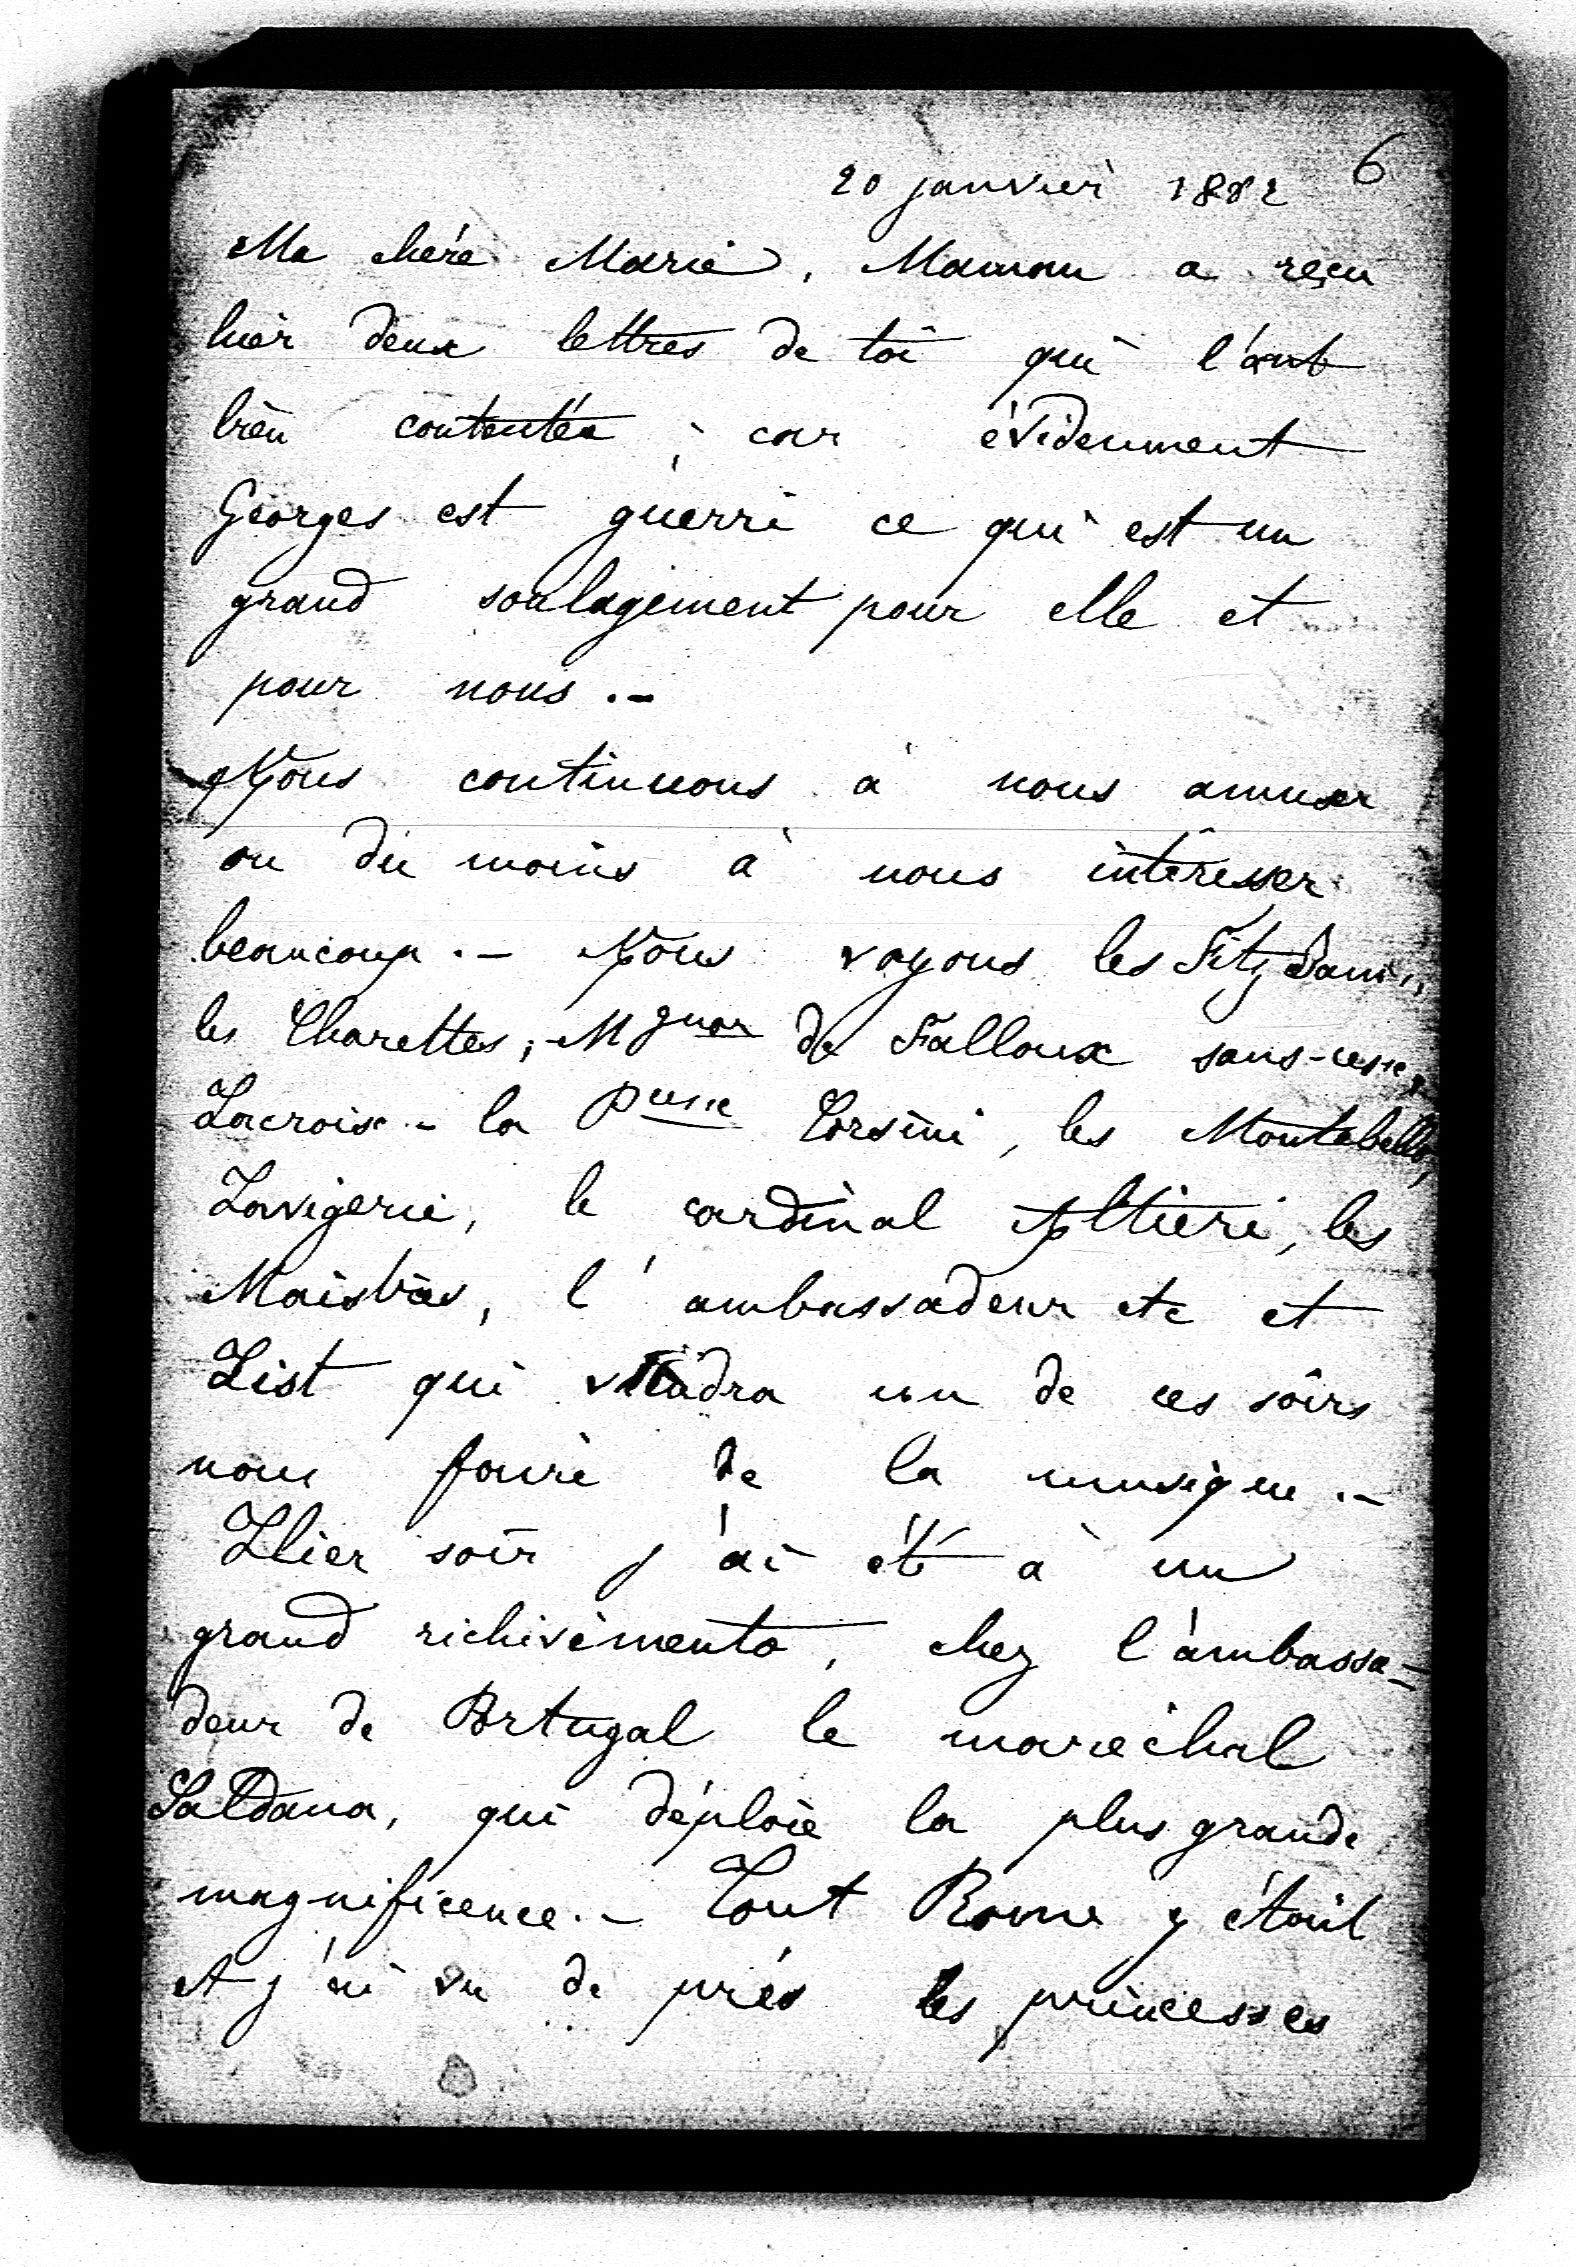 6
20 janvier 1882
Ma chère Marie, Maman a reçu
hier deux lettres de toi qui l'ont
bien contentée, car évidemment
Georges est guerri ce qui est un
grand soulagement pour elle et
pour nous.-
Nous continuons à nous amuser
ou du moins à nous intéresser
beaucoup.- Nous voyons les Fitz
les Charettes, Mgneur de Falloux sans-cesse,
Lacroix - la Pcesse Corsini, les Montebello,
Lavigerie, le cardinal Altieri, les
Maistres, l'ambassadeur etc et
List qui viendra un de ces soirs
nous faire de la musique.-
Hier soir j'ai été à un
grand richivimento, chez l'ambassa-
deur de Portugal le maréchal
Saldana, qui déploie la plus grande
magnificence.- Tout Rome y était
et j'ai vu de près les princesses